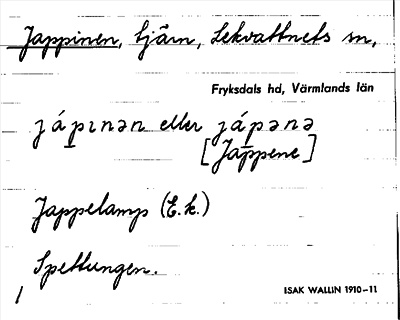 Jappinen, tjärn, Lekvattnets sn,
Fryksdals hd, Värmlands län
jápɪnən eller jápənə
[Jappene]
Jappelamp (E.k.)
Spettungen.
ISAK WALLIN 1910-11